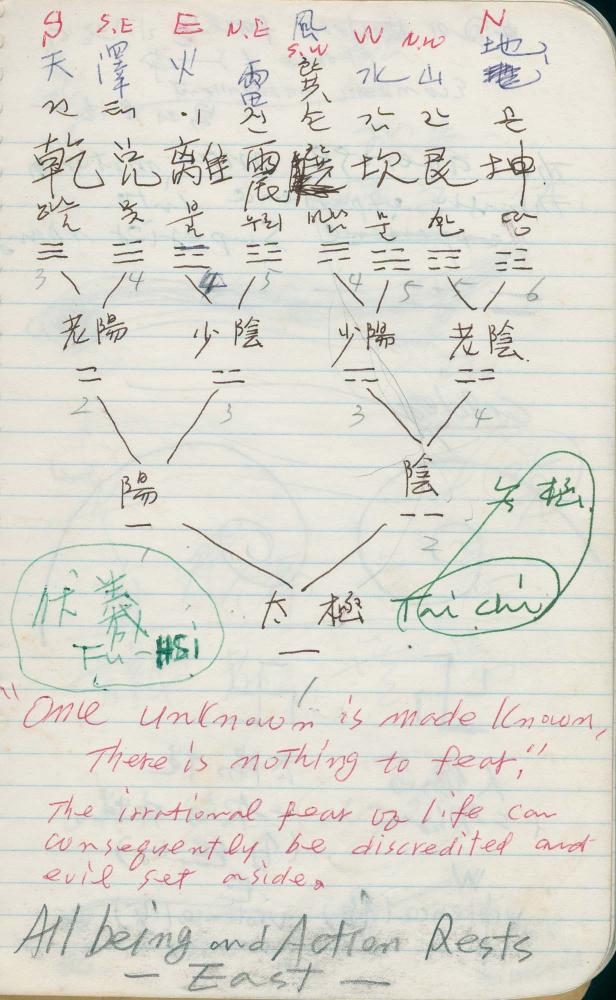 S S.E E N.E S.W W N.W N
天 澤 火 雷 風 水 山 地
건 태 이 진 손 감 간 곤
乾 兌 離 震 巽 坎 艮 坤
하늘 못 불 우뢰 바람 물 산 땅
☰ ☱ ☲ ☳ ☴ ☵ ☶ ☷
3 4 4 5 4 5 5 6
老陽 少陰 少陽 老陰
2 3 3 4
陽 陰
1 2
无極
太極 Tai chi
1
伏羲
Fu-HSi
"Once unknown is made known,
There is nothing to fear,"
The irrational fear of life can
consequently be discredited and
evil set aside.
All being and Action Rests
— East —